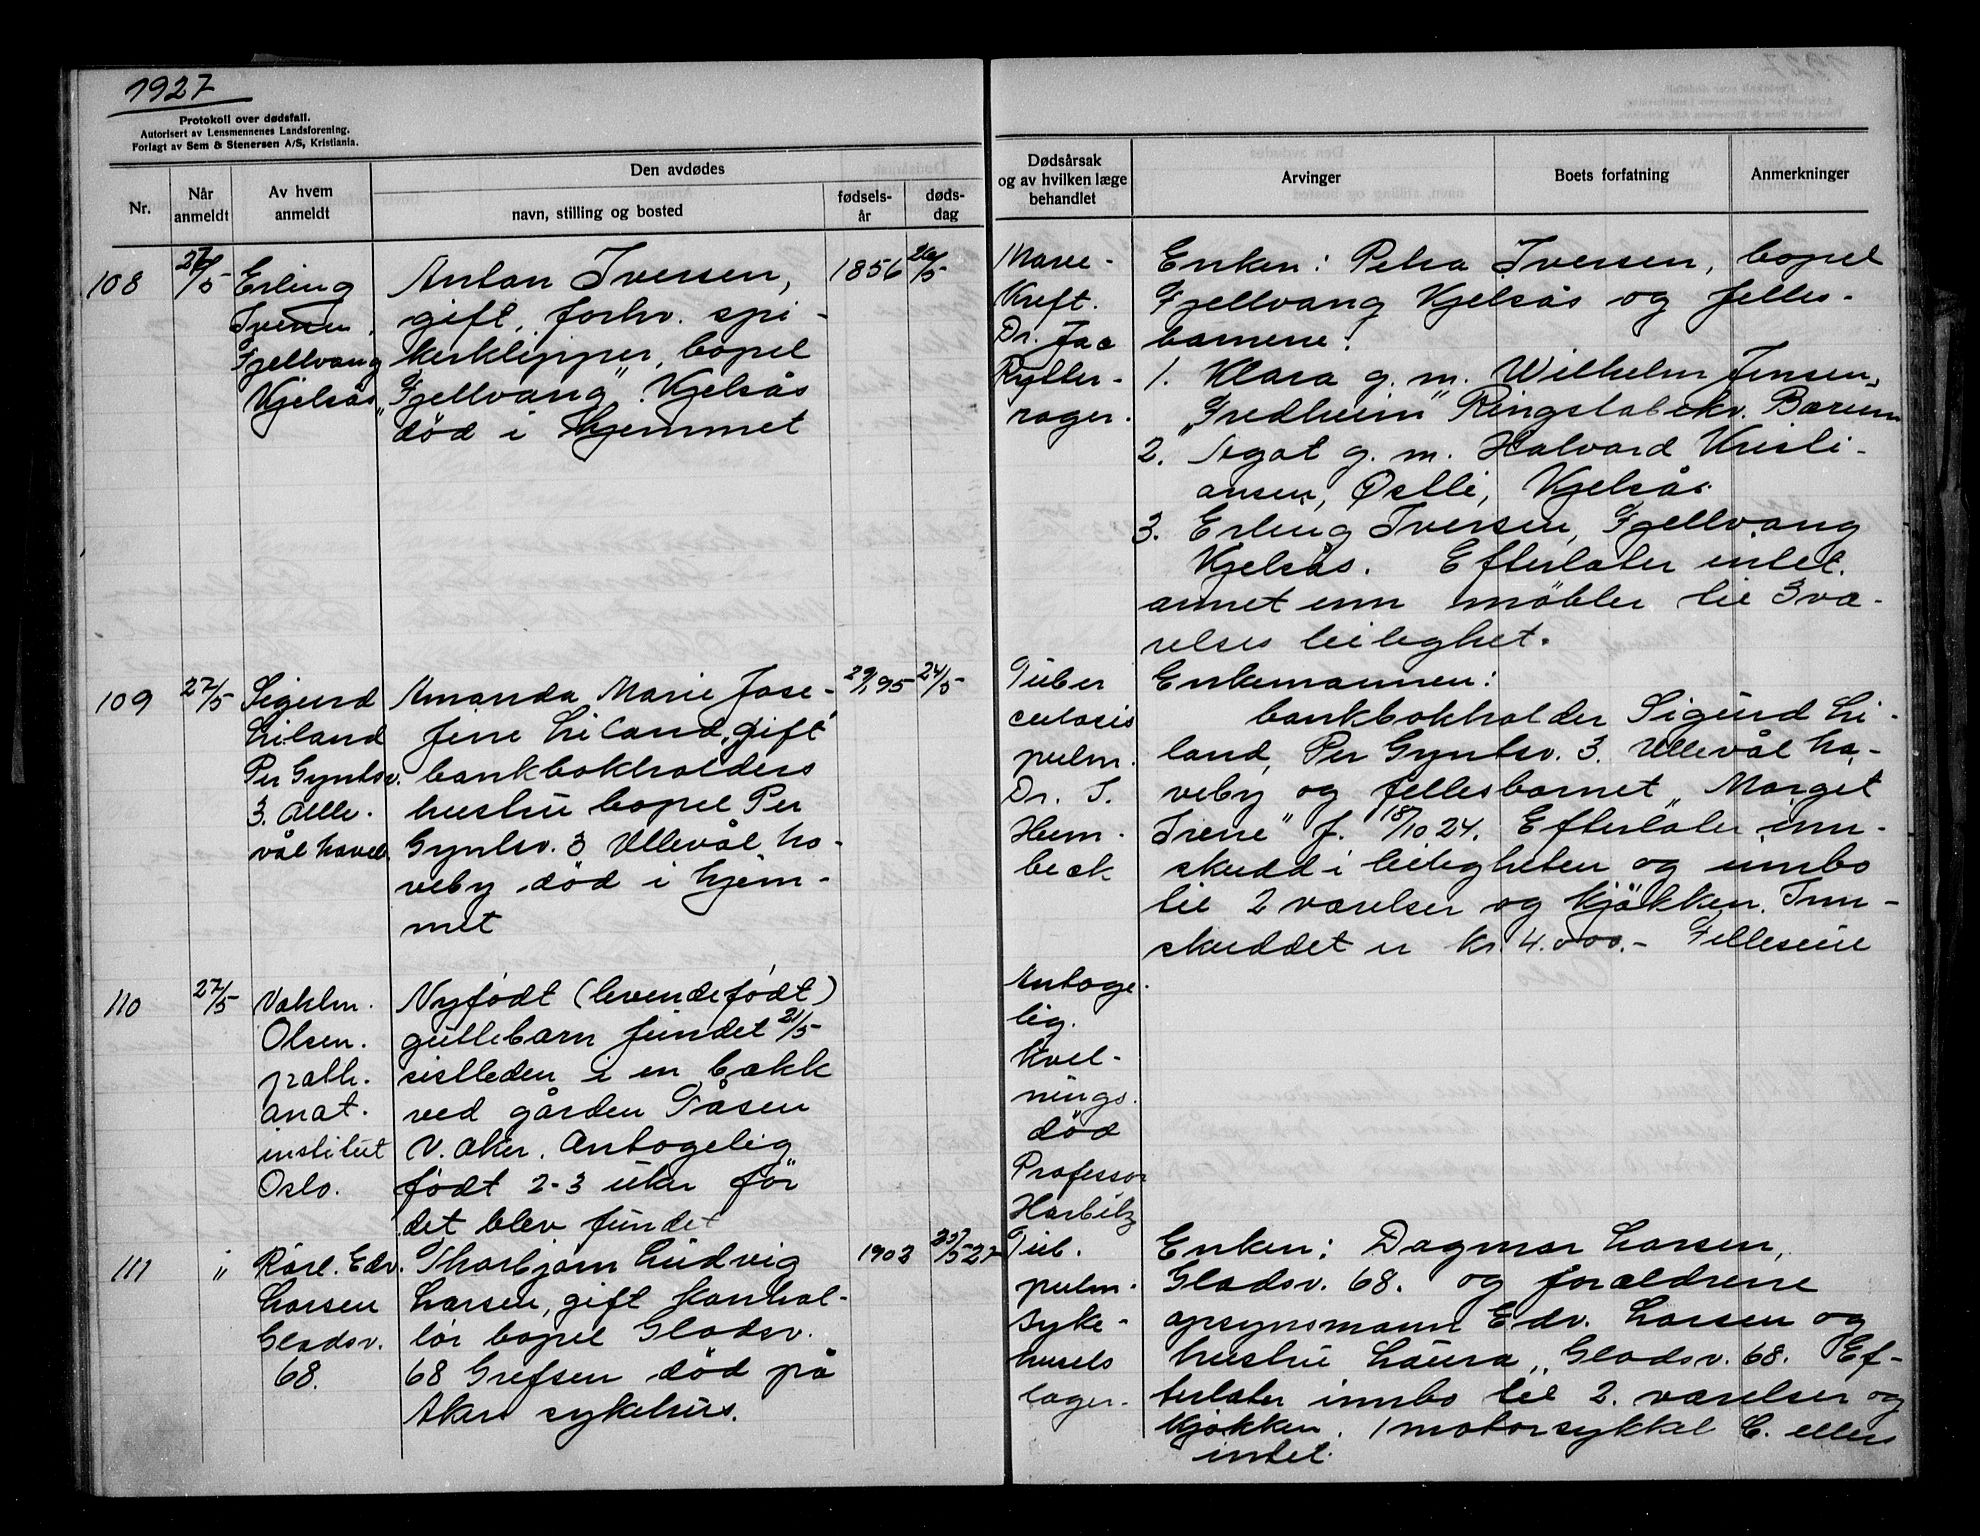 1927
Protokoll over dødsfall.
Autorisert av Lensmennenes Landsforening.
Forlagt av Sem & Stenersen A/S, Kristiania.
Nr.
Når anmeldt
Av hvem anmeldt
Den avdødes
navn, stilling og bosted
fødsels-år
døds-dag
Dødsårsak og av hvilken læge behandlet
Arvinger
Boets forfatning
Anmerkninger
108
27/5
Erling
Iversen,
Fjellvang
Kjelsås
Anton Iversen,
gift, forhv. spi-
kerklipper, bopel
"Fjellvang" Kjelsås
død i hjemmet
1856
26/5
Mave-
kreft.
Dr. Jac
Rytter-
rager.
Enken: Petra Iversen, bopel
Fjellvang Kjelsås og felles-
barnene:
1. Klara g. m. Wilhelm Jensen,
"Fredheim" Ringstabekv. Bærum
2. Agot g. m. Halvard Kristi-
ansen, Østli, Kjelsås
3. Erling Iversen, Fjellvang
Kjelsås. Efterlater intet
annet enn møbler til 3 væ-
relses leilighet.
109
27/5
Sigurd
Liland
Per Gyntsv.
3. Ulle-
vål haveb.
Amanda Marie Jose-
fine Liland, gift
bankbokholders
hustru bopel Per
Gyntsv. 3 Ullevål ha-
veby død i hjem-
met
29/1 95
24/5
Tuber
culosis
pulm.
Dr. S.
Hem-
beck
Enkemannen:
bankbokholder Sigurd Li-
land, Per Gyntsv. 3. Ullevål ha-
veby og fellesbarnet "Marget
Irene" f. 18/10 24. Efterlater inn-
skudd i leiligheten og innbo
til 2 værelser og kjøkken. Inn-
skuddet er kr. 4.000.- Felleseie
110
27/5
Vaktm.
Olsen.
path.
anat.
institut
Oslo.
Nyfødt (levendefødt)
guttebarn fundet 21/5
sistleden i en bækk
ved gården Tåsen
V. Aker. Antagelig
født 2-3 uker før
det blev fundet
Antage-
lig.
kvel-
nings.
død
Professor
Harbitz
111
"
Karl. Edv.
Larsen
Gladsv.
68.
Thorbjørn Ludvig
Larsen, gift kontor-
ist bopel Gladsv.
68 Grefsen død på
Aker sykehus.
1903
/5 27
Tub.
pulm.
syke-
husets
læger.
Enken: Dagmar Larsen,
Gladsv. 68. og forældrene
opsynsmann Edv. Larsen og
hustru Laura, Gladsv. 68. Ef-
terlater innbo til 2. værelser og
kjøkken. 1 motorsykkel E. ellers
intet.